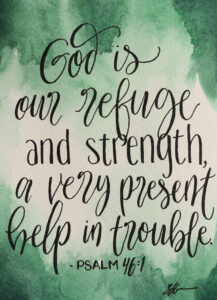 God is
our refuge
and strength,
a very present
help in trouble.
- PSALM 46:1